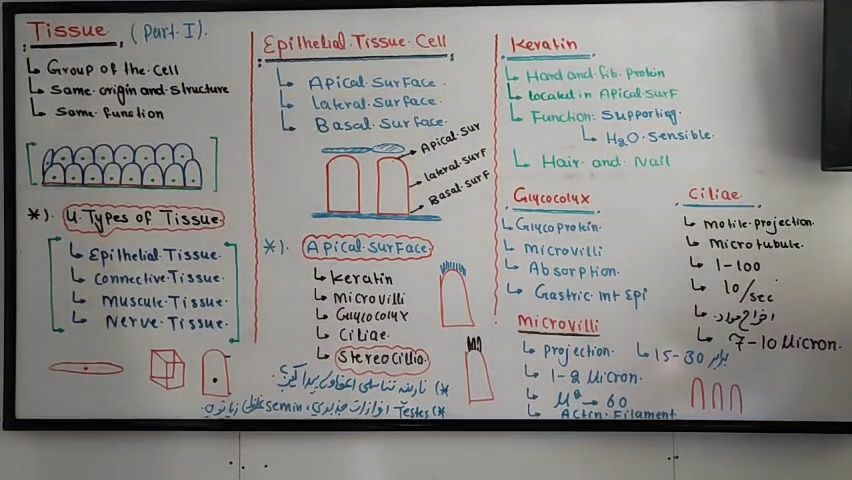 Tissue. (Part.I).
Group of the cell
same origin and structure
same function
*). 4.Types of Tissue.
Epilhelial.Tissue.
Connective.Tissue.
Muscule.Tissue.
Nerve.Tissue.
Epilhelial.Tissue.Cell
Apical.Surface.
lateral.surface.
Basal.surface.
Apical.Sur
lateral.surF
Basal.surF
*). Apical.surface.
Keratin
Microvilli
Glycocolyx
Ciliae
Stereocillia
*) نارینه تناسلی
*) Testes افرازات semin
Keratin
Hard and fib.protin
located in Apical.surF
Function: Supporting.
H2O.Sensible.
Hair and Nail
Glycocolyx
Glycoprotein.
Microvilli
Absorption.
Gastric.int Epi
Microvilli
Projection.
15-30 برابر
1-2 Micron.
M² → 60
Actin.Filament
Ciliae.
Motile.projection.
Microtubule.
1-100
10/sec
اخراج مواد.
7-10 Micron.